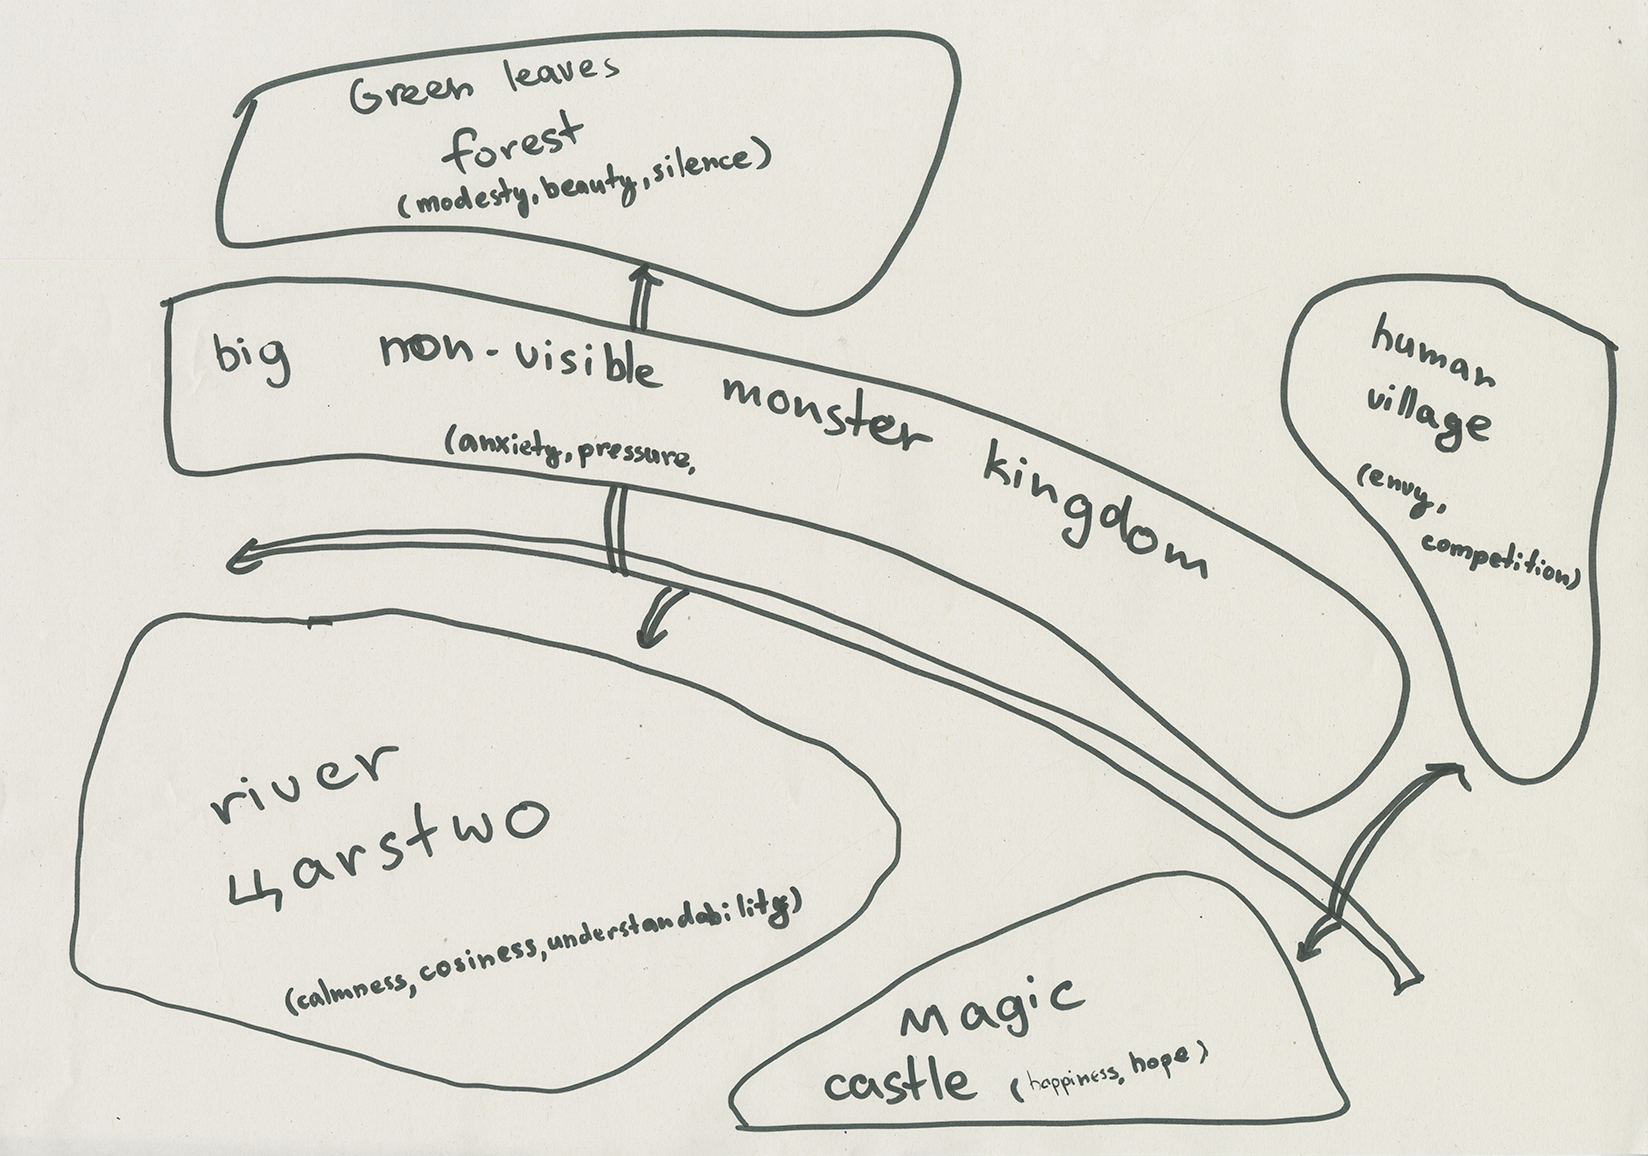 Green leaves
forest
(modesty, beauty, silence)
big non-visible monster kingdom
(anxiety, pressure,
human
village
(envy,
competition)
river
царstwo
(calmness, cosiness, understandability)
Magic
castle (happiness, hope)